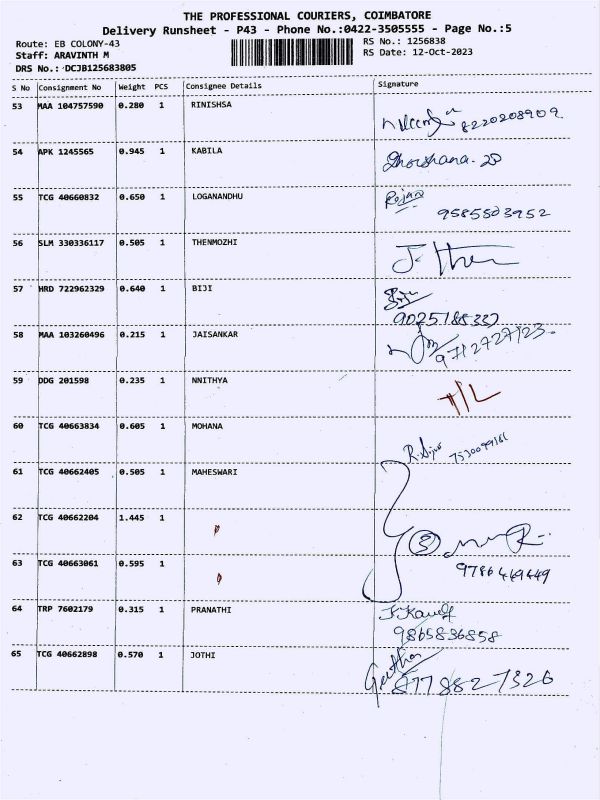 THE PROFESSIONAL COURIERS, COIMBATORE
Delivery Runsheet - P43 - Phone No.:0422-3505555 - Page No.:5
Route: EB COLONY-43 RS No.: 1256838
Staff: ARAVINTH M RS Date: 12-Oct-2023
DRS No.: DCJB125683805
S No Consignment No Weight PCS Consignee Details Signature
53 MAA 104757590 0.280 1 RINISHSA
8220208909
54 APK 1245565 0.945 1 KABILA
55 TCG 40660832 0.650 1 LOGANANDHU
Rajan
9585503952
56 SLM 330336117 0.505 1 THENMOZHI
57 HRD 722962329 0.640 1 BIJI
9025188337
58 MAA 103260496 0.215 1 JAISANKAR
9712727123
59 DDG 201598 0.235 1 NNITHYA
60 TCG 40663834 0.605 1 MOHANA
61 TCG 40662405 0.505 1 MAHESWARI
62 TCG 40662204 1.445 1
3
63 TCG 40663061 0.595 1
9786469449
64 TRP 7602179 0.315 1 PRANATHI
9865836858
65 TCG 40662898 0.570 1 JOTHI
Geetha
8778827326